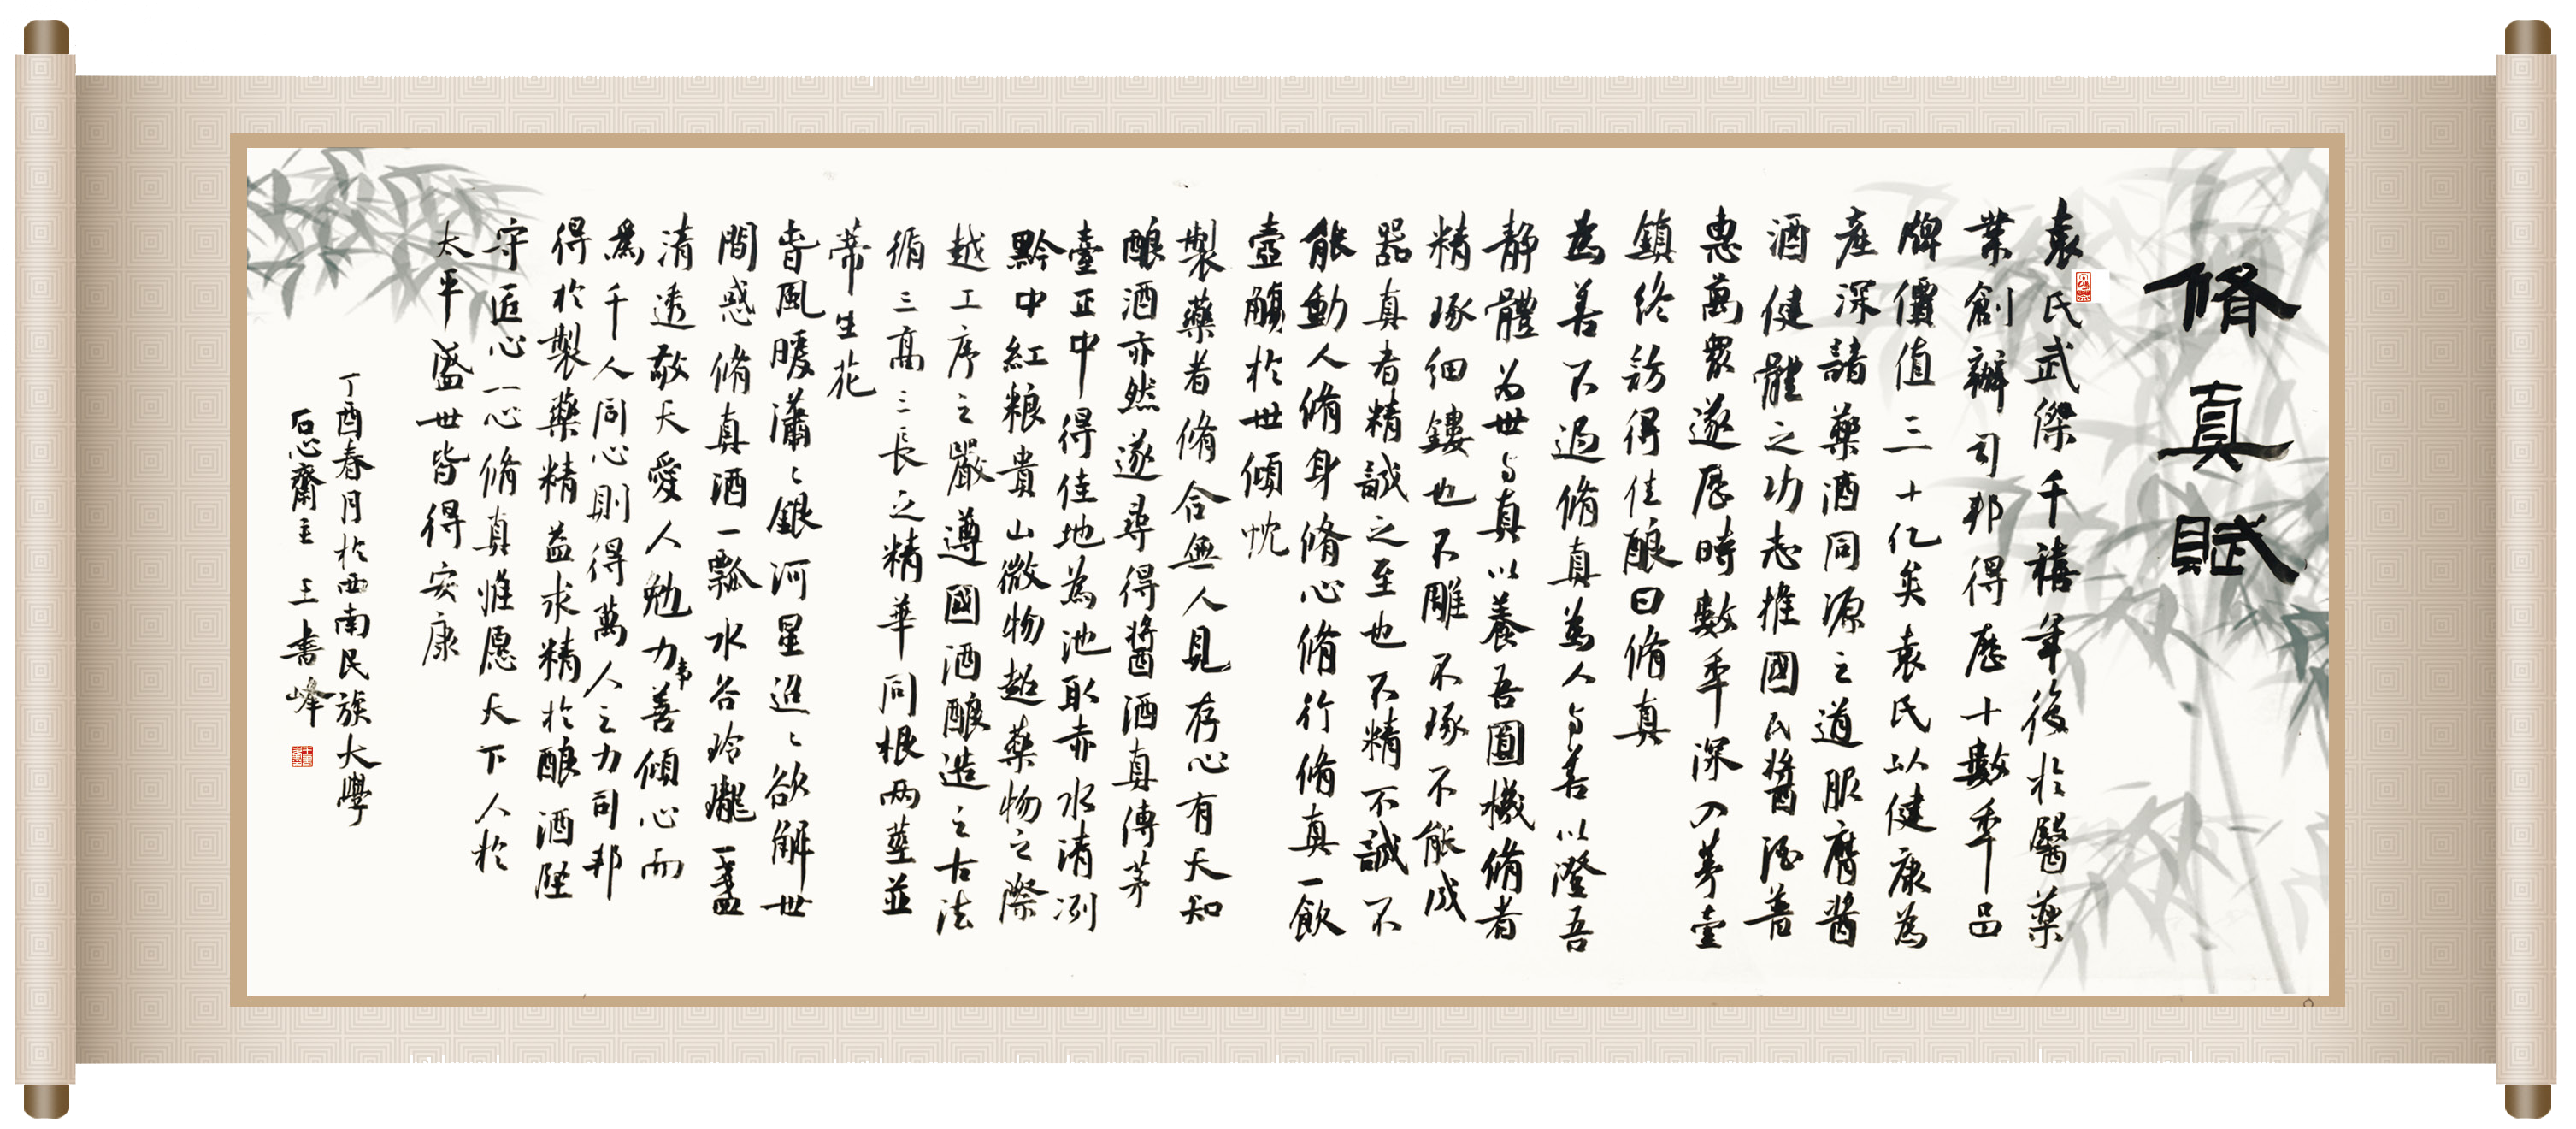 脩真賦
袁氏武傑千禧年後於醫藥
業創辦司邦得歷十數年品
牌價值三十亿矣袁氏以健康為
產深諸藥酒同源之道服膺酱
酒健體之功志推國民醬酒普
惠萬眾遂歷時數年深入茅臺
鎮終訪得佳酿曰脩真
為善不過脩真為人与善以澄吾
静體为世与真以養吾圓機脩者
精琢细鏤也不雕不琢不能成
器真者精誠之至也不精不誠不
能動人脩身脩心脩行脩真一飲
壺觴於世傾忱
製藥者脩合無人見存心有天知
酿酒亦然遂尋得醬酒真傳茅
臺正中得佳地為池取赤水清冽
黔中紅粮貴山微物起藥物之際
越工序之嚴遵國酒酿造之古法
循三高三長之精華同根两莖並
蒂生花
昔風暖瀟〻銀河星迢〻欲解世
間惑脩真酒一瓢水谷玲瓏一盞
清透敬天愛人勉力善傾心而
為千人同心則得萬人之力司邦
得於製藥精益求精於酿酒堅
守匠心一心脩真惟愿天下人於
太平盛世皆得安康
丁酉春月於西南民族大學
石心齋主 王書峰